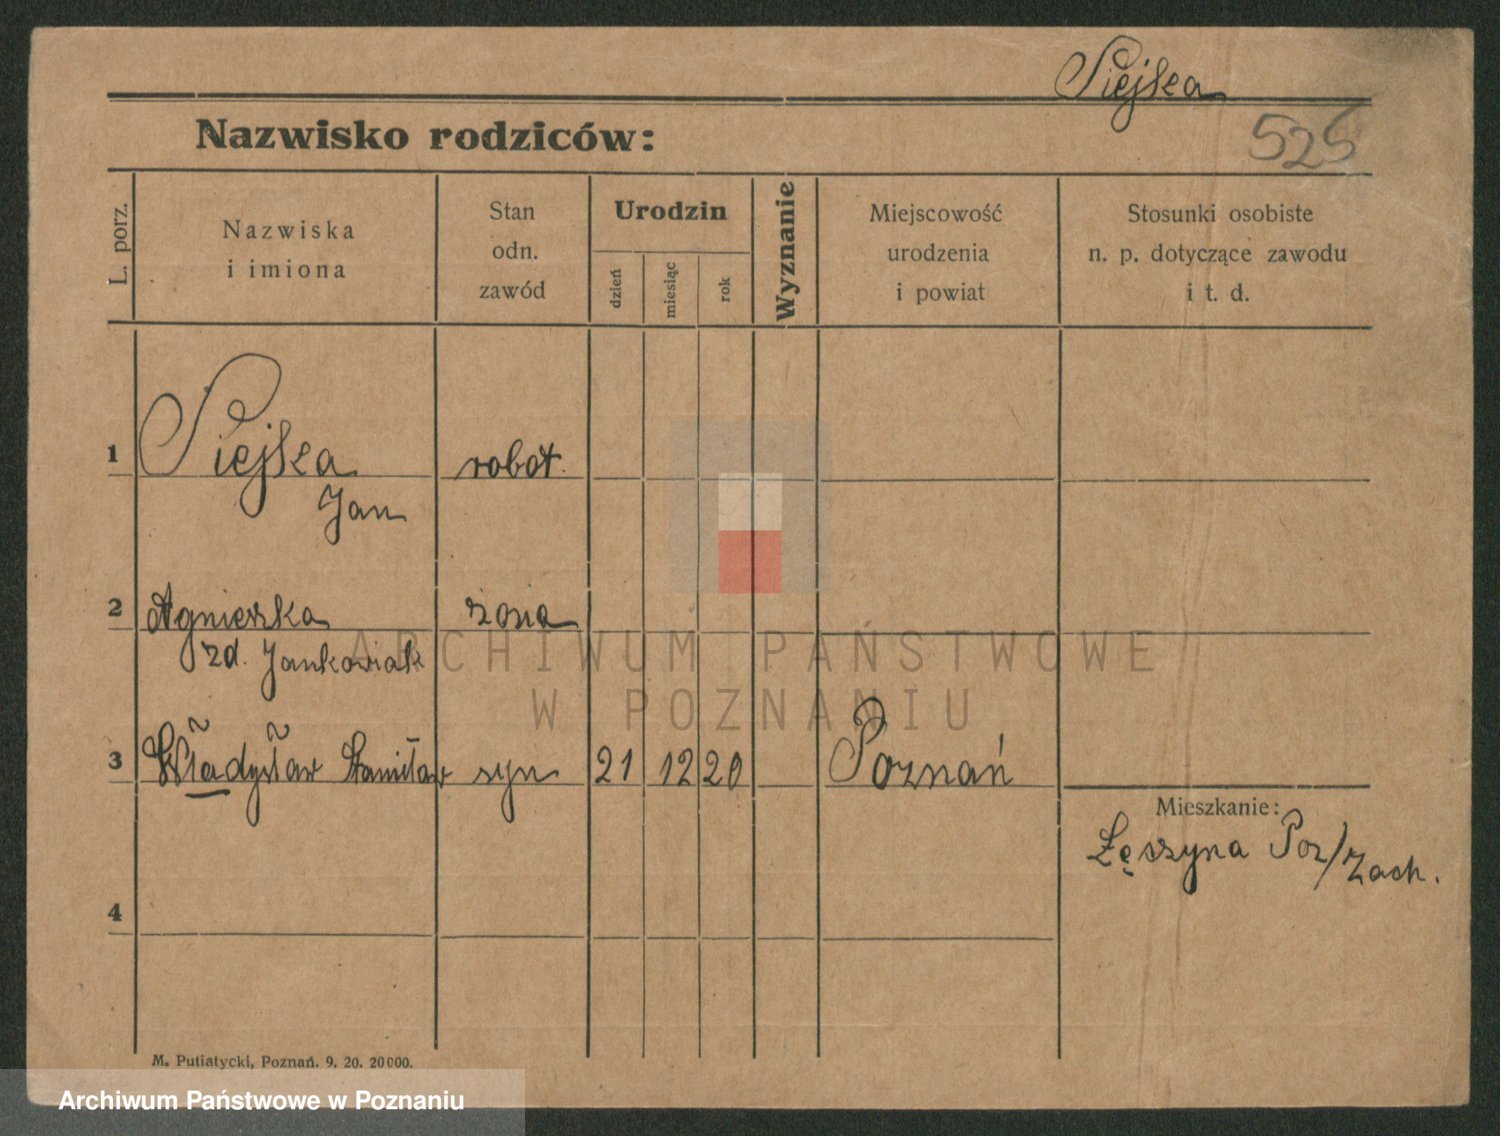 Siejska
525
Nazwisko rodziców:
L. porz.
Nazwiska
i imiona
Stan
odn.
zawód
Urodzin
dzień
miesiąc
rok
Wyznanie
Miejscowość
urodzenia
i powiat
Stosunki osobiste
n. p. dotyczące zawodu
i t. d.
1 Siejska robot.
Jan
2 Agnieszka żona
zd. Jankowiak
3 Władysław Stanisław syn 21 12 20 Poznań
Mieszkanie:
Łęczyna Poz/Zach.
4
M. Putiatycki, Poznań. 9. 20. 20000.
ARCHIWUM PAŃSTWOWE
W POZNANIU
Archiwum Państwowe w Poznaniu